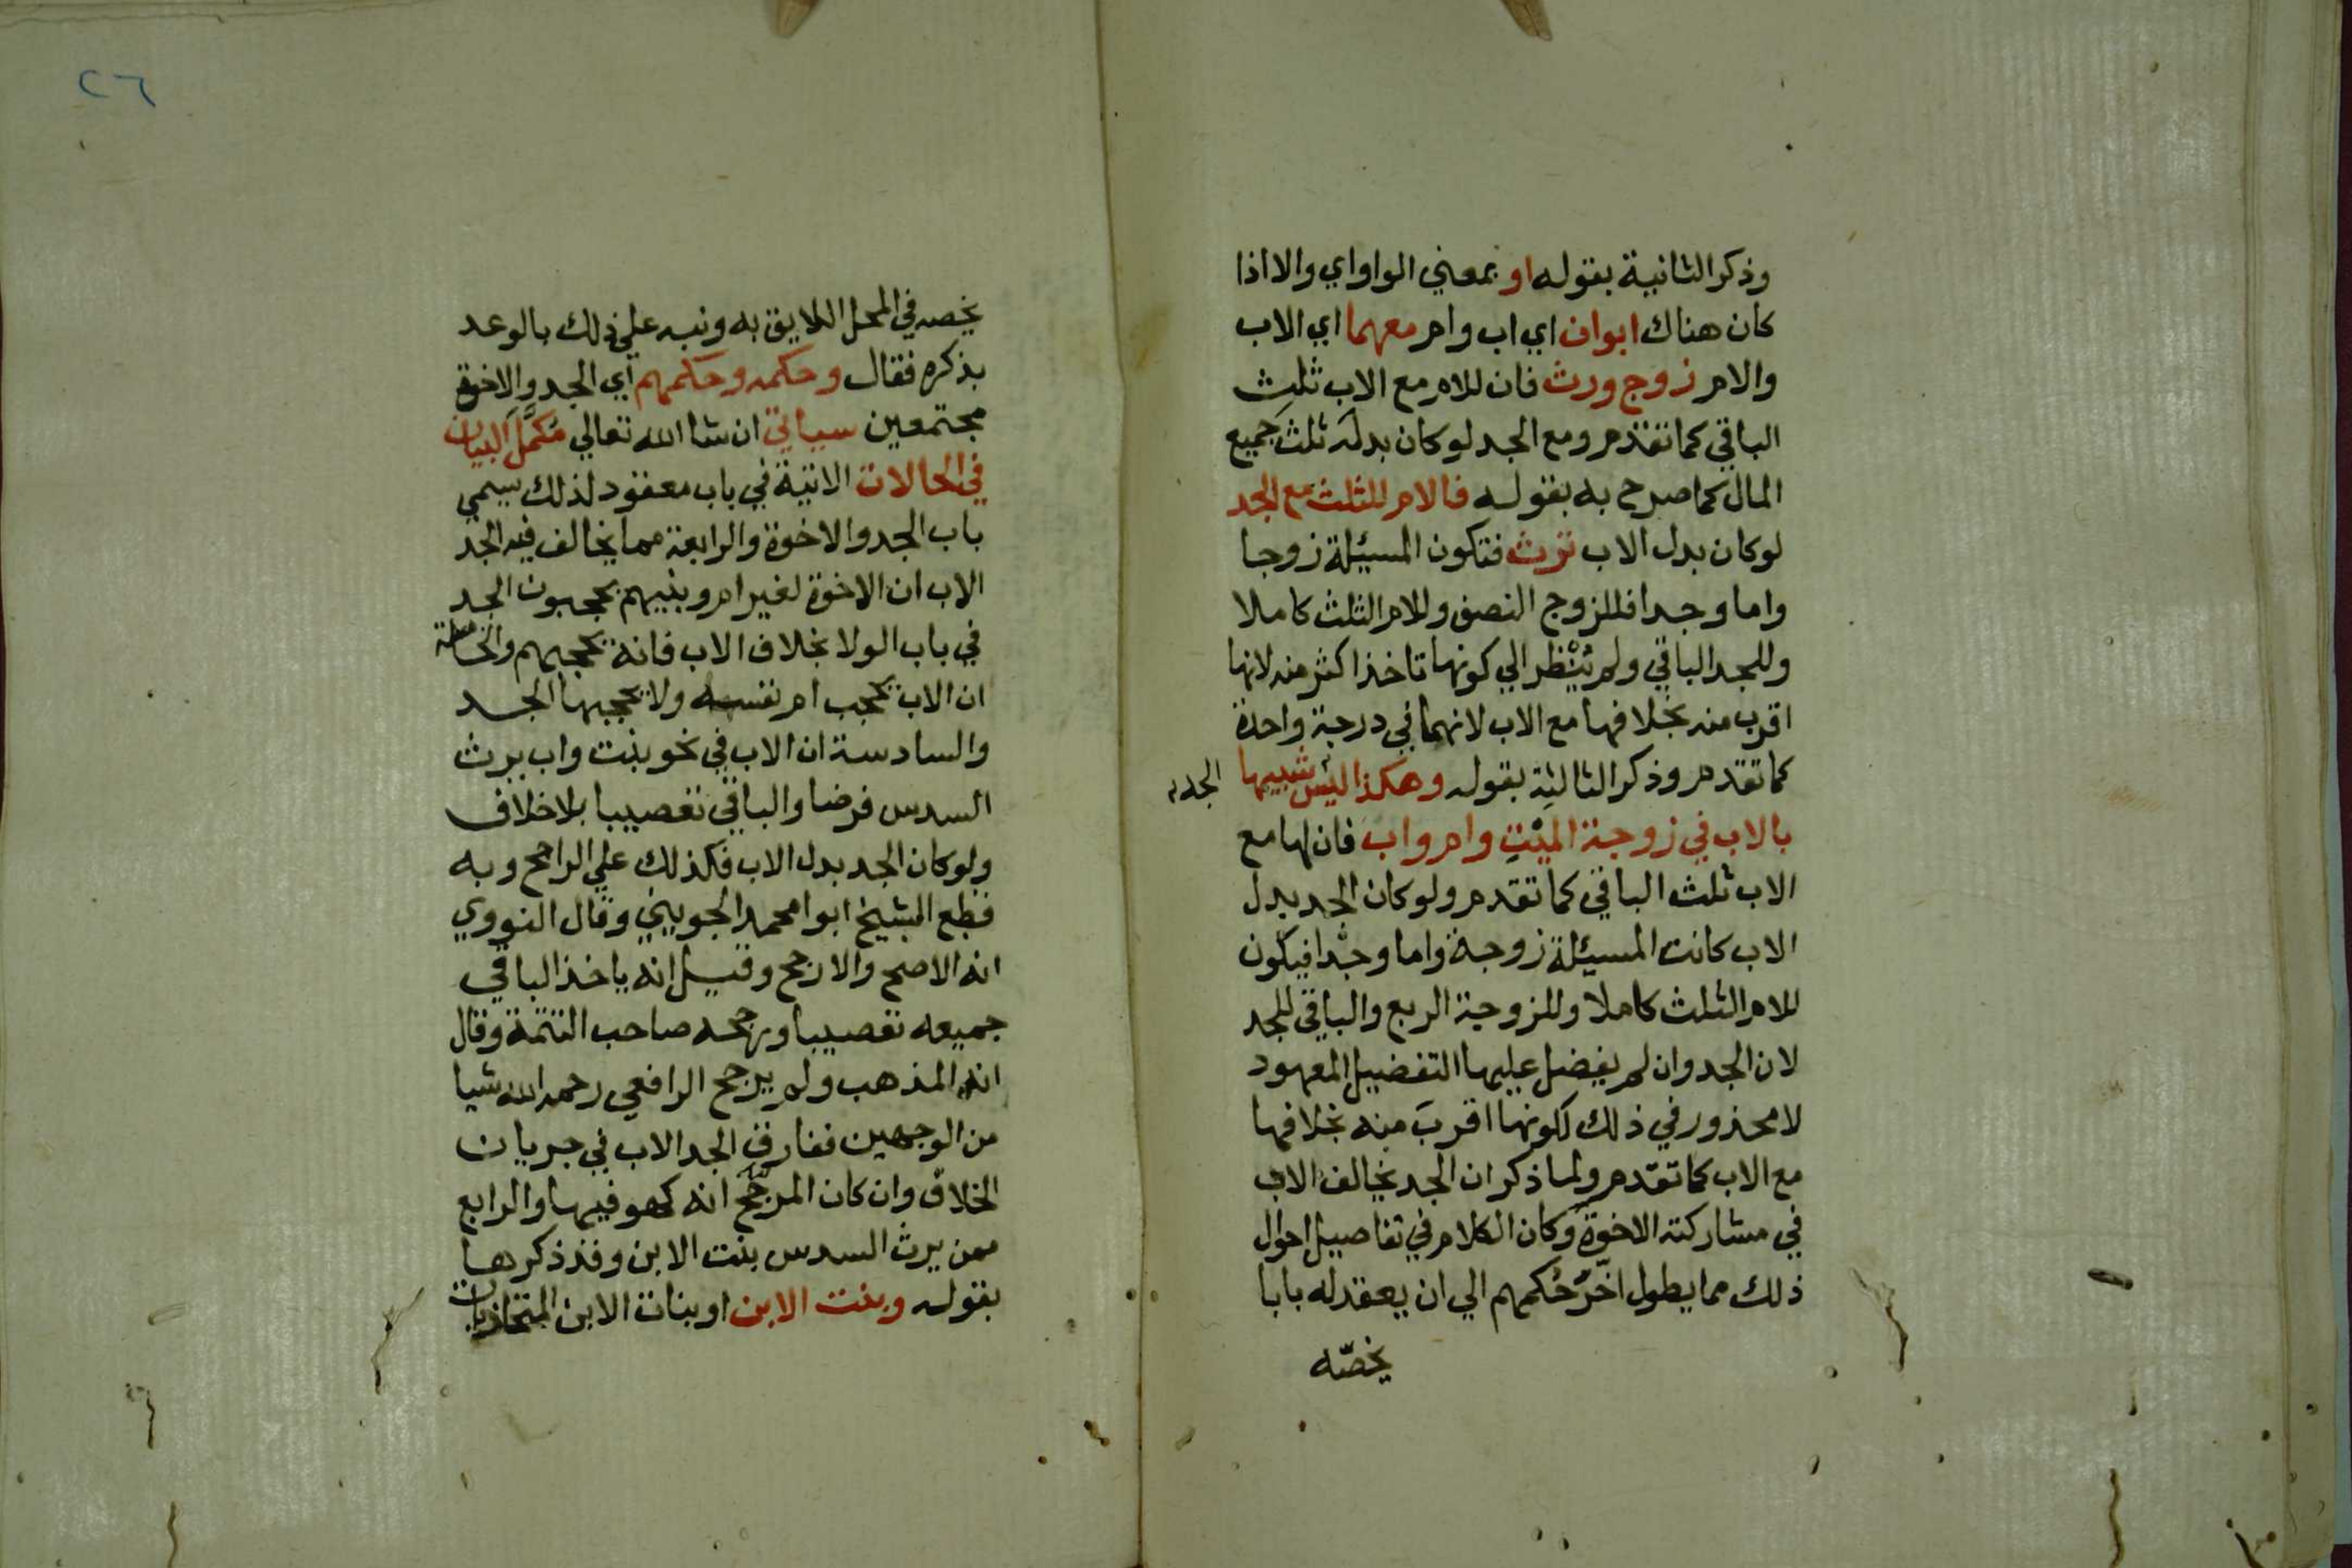 وذكر الثانية بقوله او بمعني الواو اي والا اذا
كان هناك ابوان اي اب وام معهما اي الاب
والام زوج ورث فان للام مع الاب ثلث
الباقي كما تقدم ومع الجد لو كان بدله ثلث جميع
المال كما صرح به بقوله فالام للثلث مع الجد
لو كان بدل الاب ترث فتكون المسيئلة زوجا
واما وجدا فللزوج النصف وللام الثلث كاملا
وللجد الباقي ولم يُنْظر الي كونها تاخذ اكثر منه لانها
اقرب منه بخلافها مع الاب لانهما في درجة واحدة
كما تقدم وذكر الثالثة بقوله وهكذا ليس شبيها الجد
بالاب في زوجة الميْتِ وام واب فان لها مع
الاب ثلث الباقي كما تقدم ولو كان الجد بدل
الاب كانت المسيئلة زوجة واما وجدا فيكون
للام الثلث كاملا وللزوجة الربع والباقي للجد
لان الجد وان لم يفضل عليها التفضيل المعهود
لا محذور في ذلك لكونها اقربَ منه بخلافها
مع الاب كما تقدم ولما ذكر ان الجد يخالف الاب
في مشاركته الاخوة وكان الكلام في تفاصيل احوال
ذلك مما يطول اخّرَ حُكمهم الي ان يعقد له بابا
يخصّه
٢٦
يخصه في المحل اللايق به ونبه علي ذلك بالوعد
بذكره فقال وحكمه وحكمهم اي الجد والاخوة
مجتمعين سياتي ان شا الله تعالي مُكمَّلَ البيان
في الحالات الاتية في باب معقود لذلك يسمي
باب الجد والاخوة والرابعة مما يخالف فيه الجد
الاب ان الاخوة لغير ام وبنيهم يحجبون الجد
في باب الولا بخلاف الاب فانه يحجبهم والخامسة
ان الاب يحجب ام نفسه ولا يحجبها الجد
والسادسة ان الاب في نحو بنت واب يرث
السدس فرضا والباقي تعصيبا بلا خلاف
ولو كان الجد بدل الاب فكذلك علي الراجح وبه
قطع الشيخ ابوا محمد الجويني وقال النووي
انه الاصح والارجح وقيل انه ياخذ الباقي
جميعه تعصيبا ورجحه صاحب التتمة وقال
انه المذهب ولم يرجح الرافعي رحمه الله شيا
من الوجهين ففارق الجد الاب في جريان
الخلاف وان كان المرجَّح انه كهو فيها والرابع
ممن يرث السدس بنت الابن وقد ذكرها
بقوله وبنت الابن او بنات الابن المتحاذيات